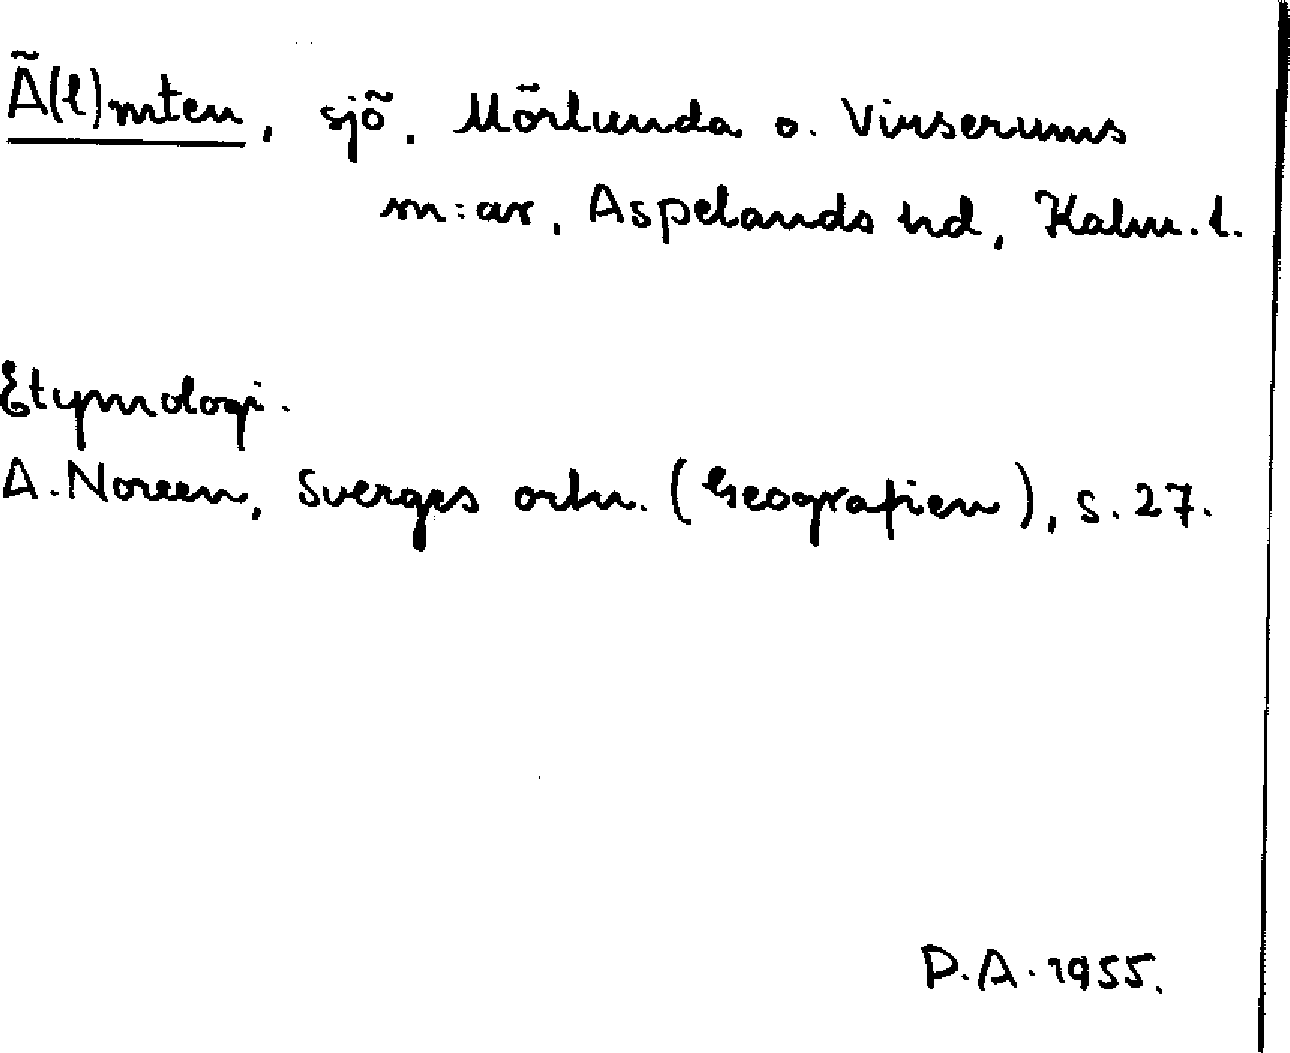 Ä(l)mten, sjö, Mörlunda o. Virserums
sn:ar, Aspelands hd, Kalm. l.
Etymologi.
A. Noreen, Sverges ortn. (Geografien), s. 27.
P.A. 1955.